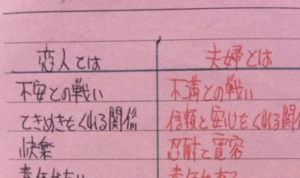 恋人とは 夫婦とは
不安との戦い 不満との戦い
ときめきをくれる関係 信頼と安心をくれる関
快楽 忍耐と寛容
責任がない 責任がある